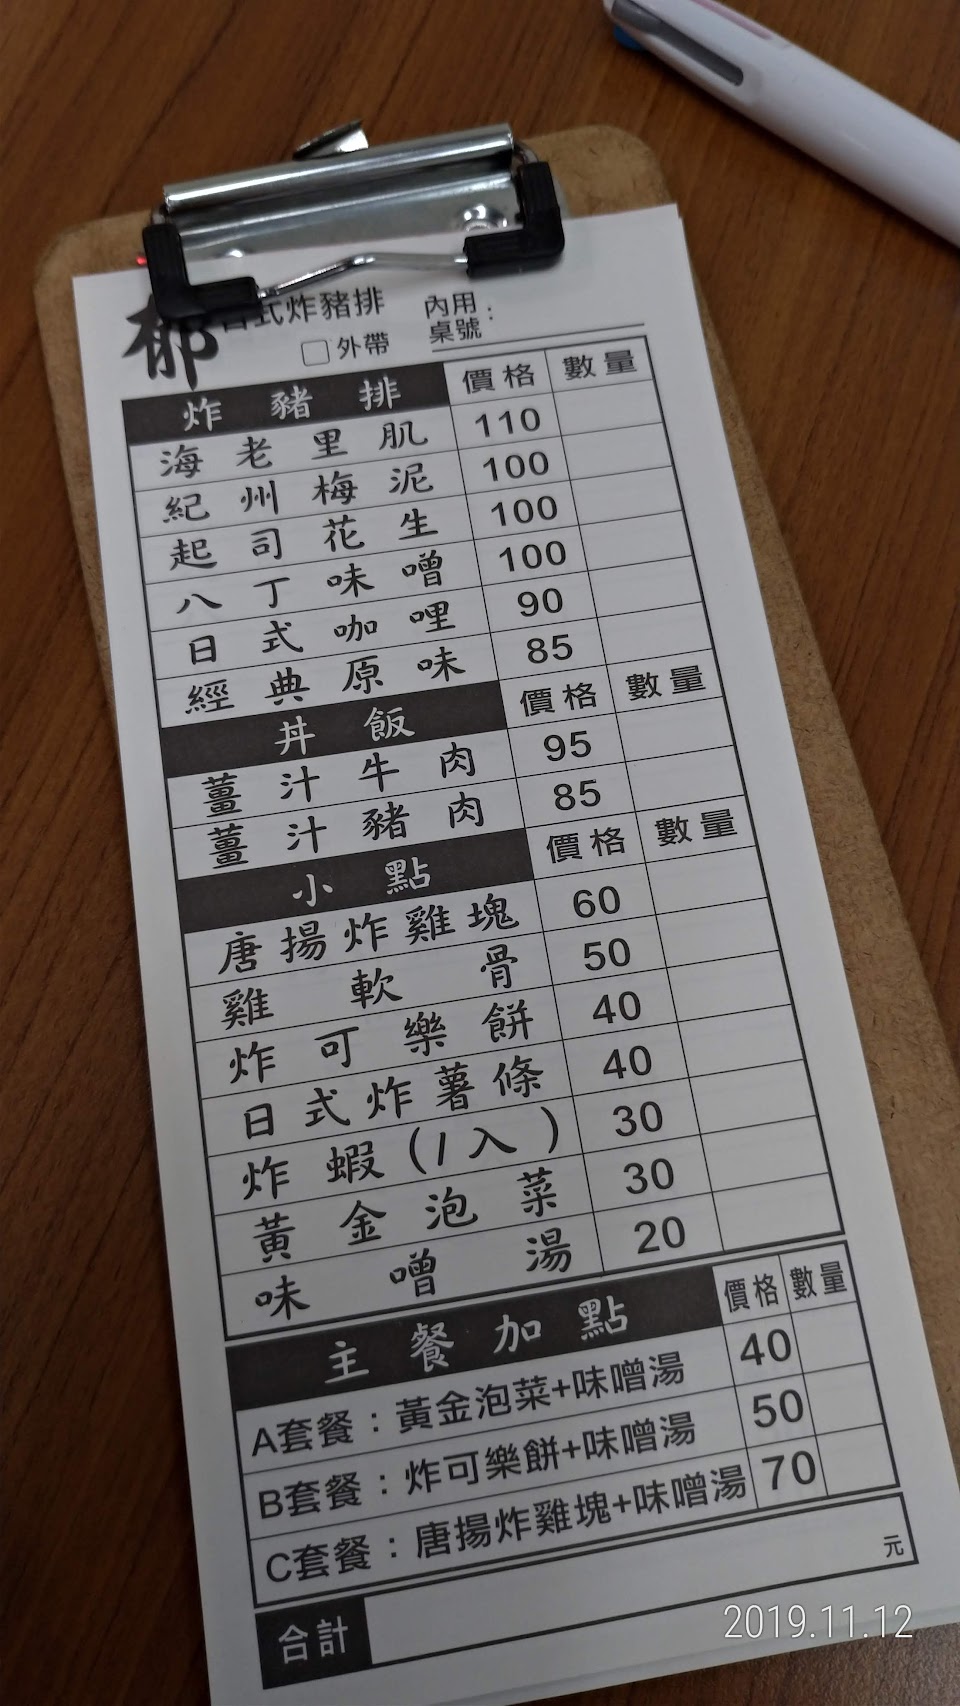 郁 日式炸豬排 內用
桌號：
□外帶
炸豬排 價格 數量
海老里肌 110
紀州梅泥 100
起司花生 100
八丁味噌 100
日式咖哩 90
經典原味 85
丼飯 價格 數量
薑汁牛肉 95
薑汁豬肉 85
小點 價格 數量
唐揚炸雞塊 60
雞軟骨 50
炸可樂餅 40
日式炸薯條 40
炸蝦(1入) 30
黃金泡菜 30
味噌湯 20
主餐加點 價格 數量
A套餐：黃金泡菜+味噌湯 40
B套餐：炸可樂餅+味噌湯 50
C套餐：唐揚炸雞塊+味噌湯 70
合計 元
2019.11.12